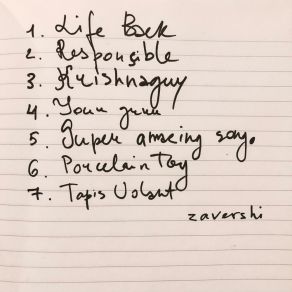 1. Life Back
2. Responsible
3. Krishnaguy
4. Your guru
5. Super amazing song.
6. Porcelain Toy
7. Tapis Volant
zavershi